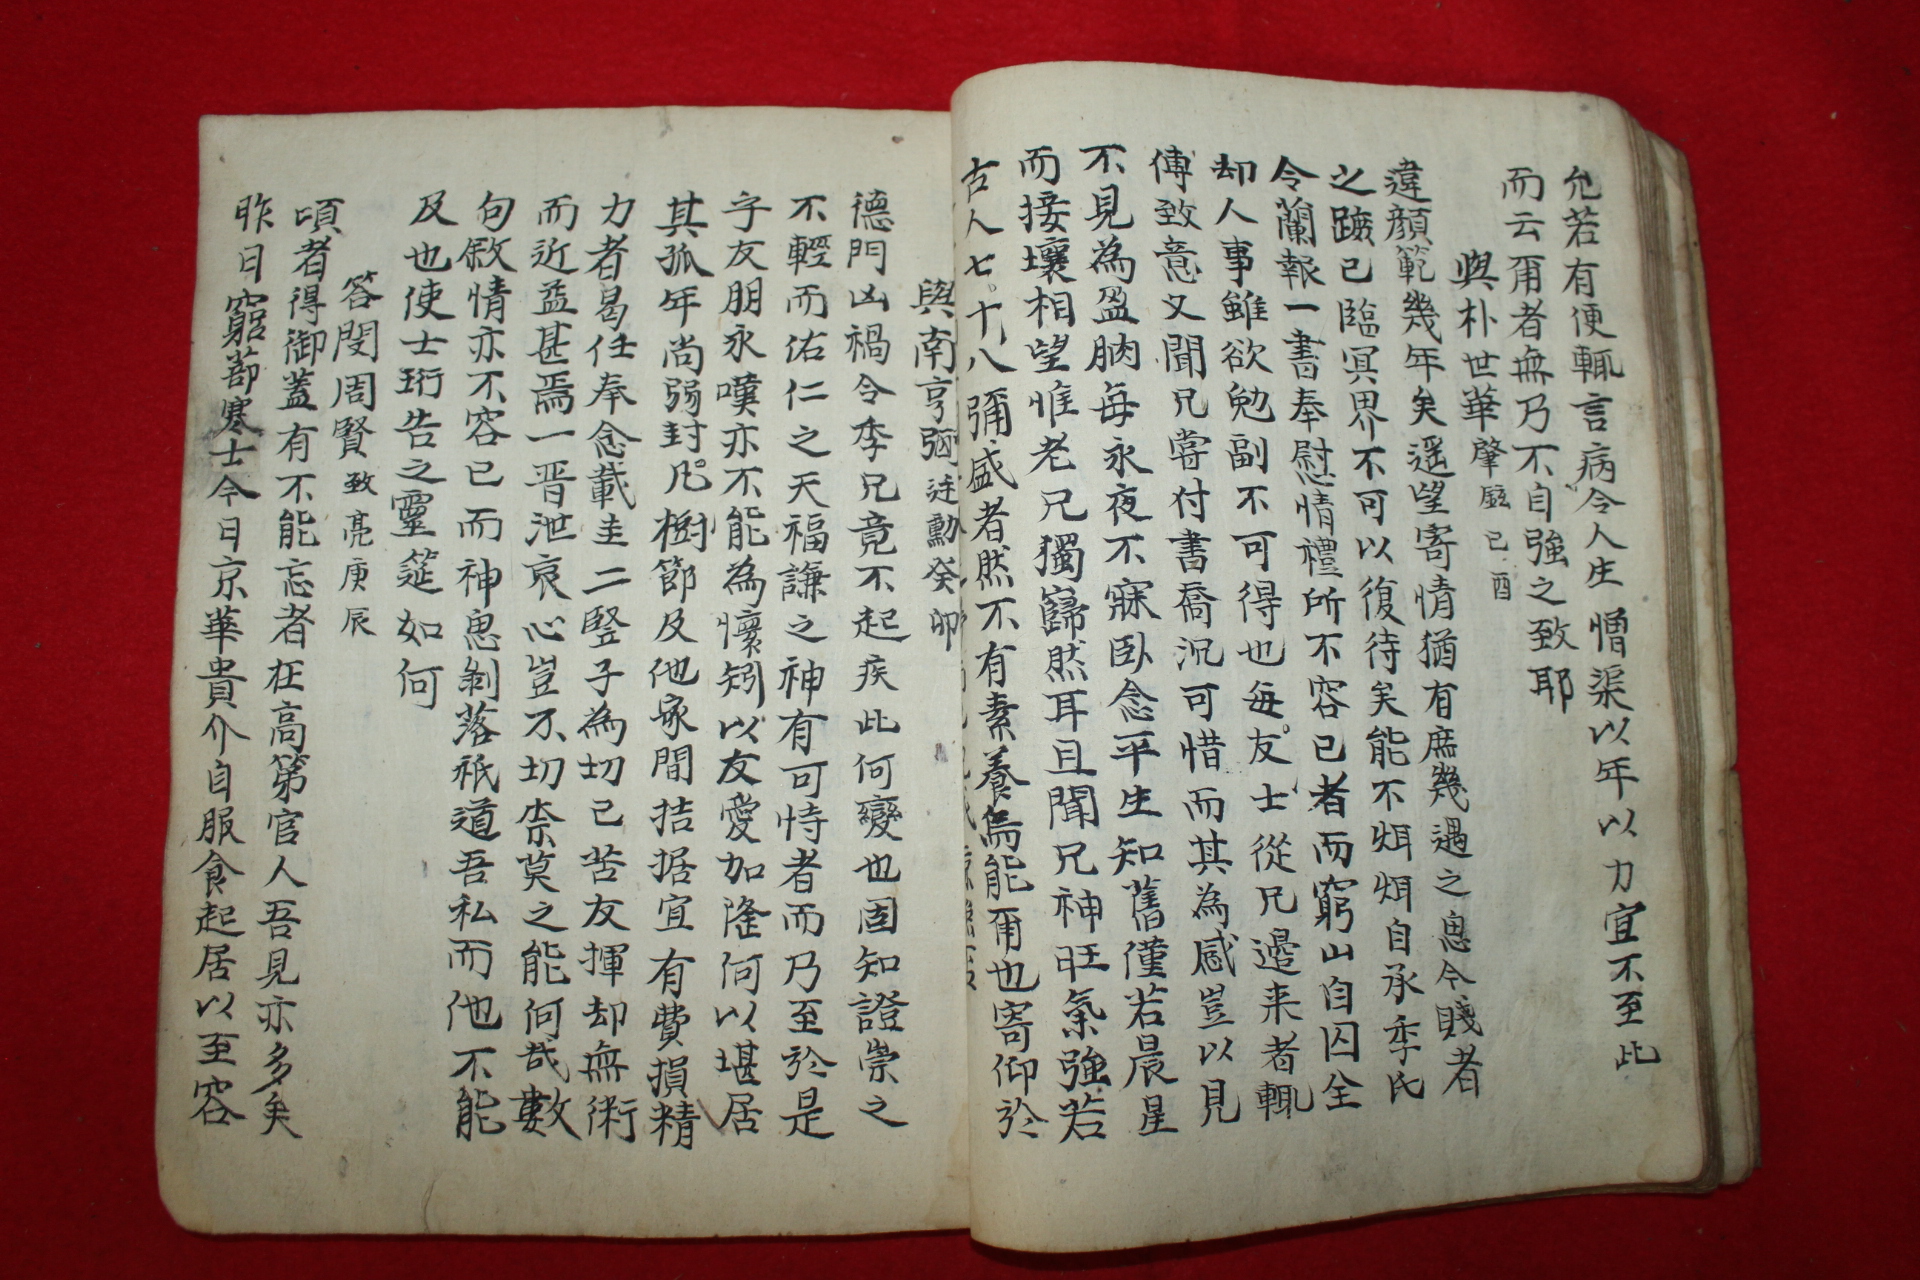 允若有便輒言病令人生憎渠以年以力宜不至此
而云爾者無乃不自強之致耶
與朴世華肇鉉己酉
違顔範幾年矣遥望寄情猶有庶幾遇之思今賤者
之蹤已臨冥界不可以復待矣能不烱烱自承季氏
令蘭報一書奉慰情禮所不容已者而窮山自囚全
却人事雖欲勉副不可得也每友士從兄邊来者輒
傳致意又聞兄嘗付書喬沉可惜而其為感豈以見
不見為盈朒每永夜不寐臥念平生知舊僅若晨星
而接壤相望惟老兄獨巋然耳且聞兄神旺氣強若
古人七十八彌盛者然不有素養焉能爾也寄仰於
與南亨弼廷勳癸卯
德門凶禍令季兄竟不起疾此何變也固知證祟之
不輕而佑仁之天福謙之神有可恃者而乃至於是
字友朋永嘆亦不能為懷矧以友愛加隆何以堪居
其孤年尚弱封凡樹節及他家間拮据宜有費損精
力者曷任奉念載圭二竪子為切己苦友揮却無術
而近益甚焉一晋泄哀心豈不切柰莫之能何哉數
句敘情亦不容已而神思剝落祇道吾私而他不能
及也使士珩告之靈筵如何
答閔周賢致亮庚辰
頃者得御蓋有不能忘者在高第官人吾見亦多矣
昨日窮蔀寒士今日京華貴介自服食起居以至容